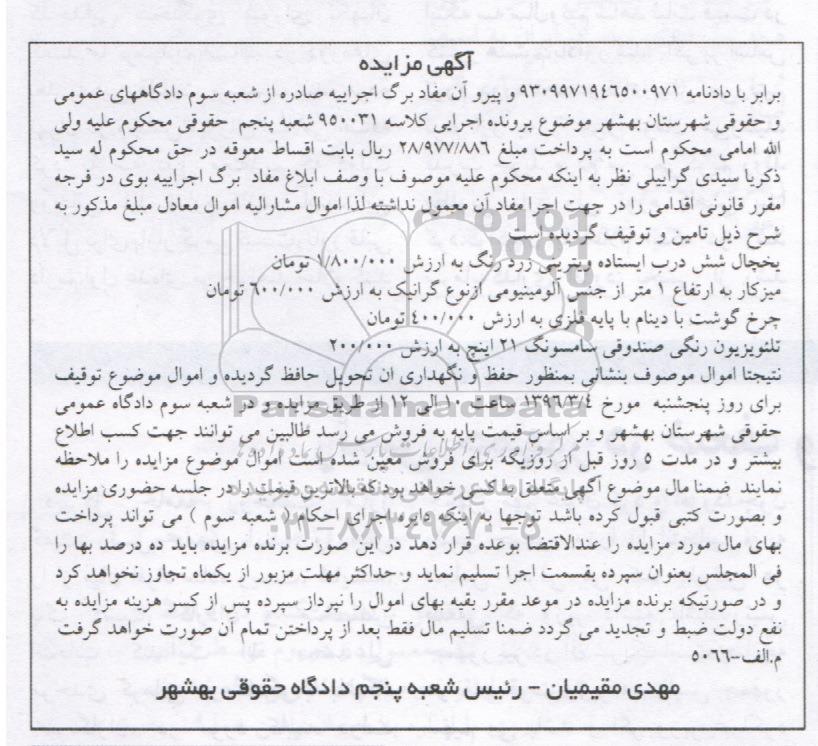 آگهی مزایده
برابر با دادنامه ۹۳۰۹۹۷۱۹٤٦٥۰۰۹۷۱ و پیرو آن مفاد برگ اجراییه صادره از شعبه سوم دادگاههای عمومی
حقوقی شهرستان بهشهر موضوع پرونده اجرایی کلاسه ۹۵۰۰۳۱ شعبه پنجم حقوقی محکوم علیه ولی
الله امامی محکوم است به پرداخت مبلغ ۲۸/۹۷۷/۸۸٦ ریال بابت اقساط معوقه در حق محکوم له سید
ذکریا سیدی گراییلی نظر به اینکه محکوم علیه موصوف با وصف ابلاغ مفاد برگ اجراییه بوی در فرجه
مقرر قانونی اقدامی را در جهت اجرا مفاد آن معمول نداشته لذا اموال مشارالیه اموال معادل مبلغ مذکور به
شرح ذیل تامین و توقیف گردیده است
یخچال شش درب ایستاده ویترینی زرد رنگ به ارزش ۱/۸۰۰/۰۰۰ تومان
میزکار به ارتفاع ۲ متر از جنس آلومینیومی ازنوع گرانیک به ارزش ٦۰۰/۰۰۰ تومان
چرخ گوشت با دینام با پایه فلزی به ارزش ٤۰۰/۰۰۰ تومان
تلئویزیون رنگی صندوقی سامسونگ ۲۱ اینچ به ارزش ۲۰۰/۰۰۰
نتیجتا اموال موصوف بنشانی بمنظور حفظ و نگهداری ان تحویل حافظ گردیده و اموال موضوع توقیف
برای روز پنجشنبه مورخ ۱۳۹٦/۳/٤ ساعت ۱۰ الی ۱۲ از طریق مزایده و در شعبه سوم دادگاه عمومی
حقوقی شهرستان بهشهر و بر اساس قیمت پایه به فروش می رسد طالبین می توانند جهت کسب اطلاع
بیشتر و در مدت ٥ روز قبل از روزیکه برای فروش معین شده است اموال موضوع مزایده را ملاحظه
نمایند ضمنا مال موضوع آگهی متعلق به کسی خواهد بود که بالاترین قیمت را در جلسه حضوری مزایده
و بصورت کتبی قبول کرده باشد توجها به اینکه دایره اجرای احکام ( شعبه سوم ) می تواند پرداخت
بهای مال مورد مزایده را عندالاقتضا بوعده قرار دهد در این صورت برنده مزایده باید ده درصد بها را
فی المجلس بعنوان سپرده بقسمت اجرا تسلیم نماید و حداکثر مهلت مزبور از یکماه تجاوز نخواهد کرد
و در صورتیکه برنده مزایده در موعد مقرر بقیه بهای اموال را نپرداز سپرده پس از کسر هزینه مزایده به
نفع دولت ضبط و تجدید می گردد ضمنا تسلیم مال فقط بعد از پرداختن تمام آن صورت خواهد گرفت
م.الف-٥۰٦٦
مهدی مقیمیان - رئیس شعبه پنجم دادگاه حقوقی بهشهر
ParsNamadData
۰۲۱-۸۸۳٤۹٦۷۰-٥